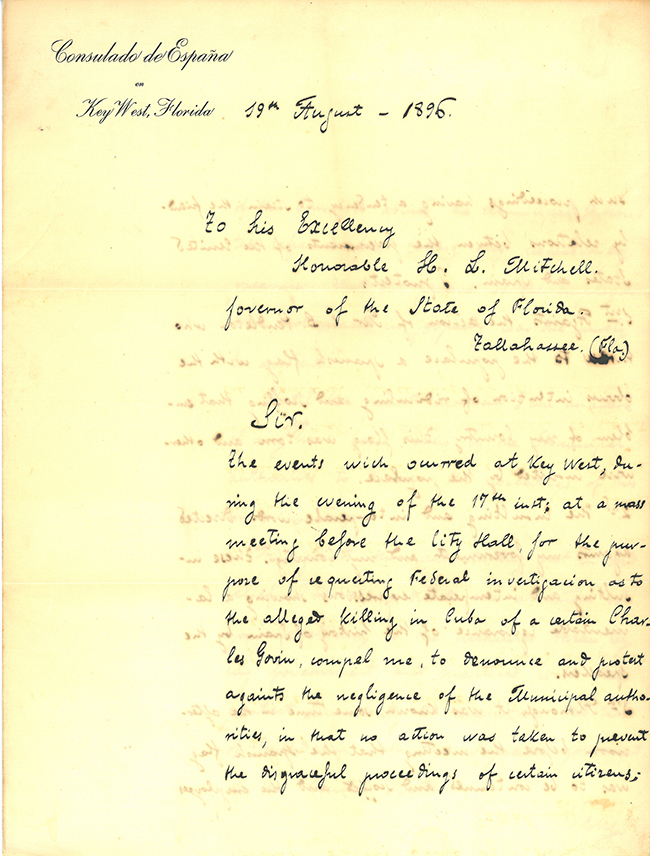 Consulado de España
en
Key West, Florida 19th August - 1896.
To his Excellency
Honorable H. L. Mitchell.
Governor of the State of Florida.
Tallahassee. (Fla.)
Sir.
The events wich ocurred at Key West, du-
ring the evening of the 17th inst; at a mass
meeting before the City Hall, for the pur-
pose of requesting Federal investigacion as to
the alleged Killing in Cuba of a certain Char-
les Govin, compel me, to denounce and protest
againts the negligence of the Municipal autho-
rities, in that no action was taken to prevent
the disgraceful proceedings of certain citizens;